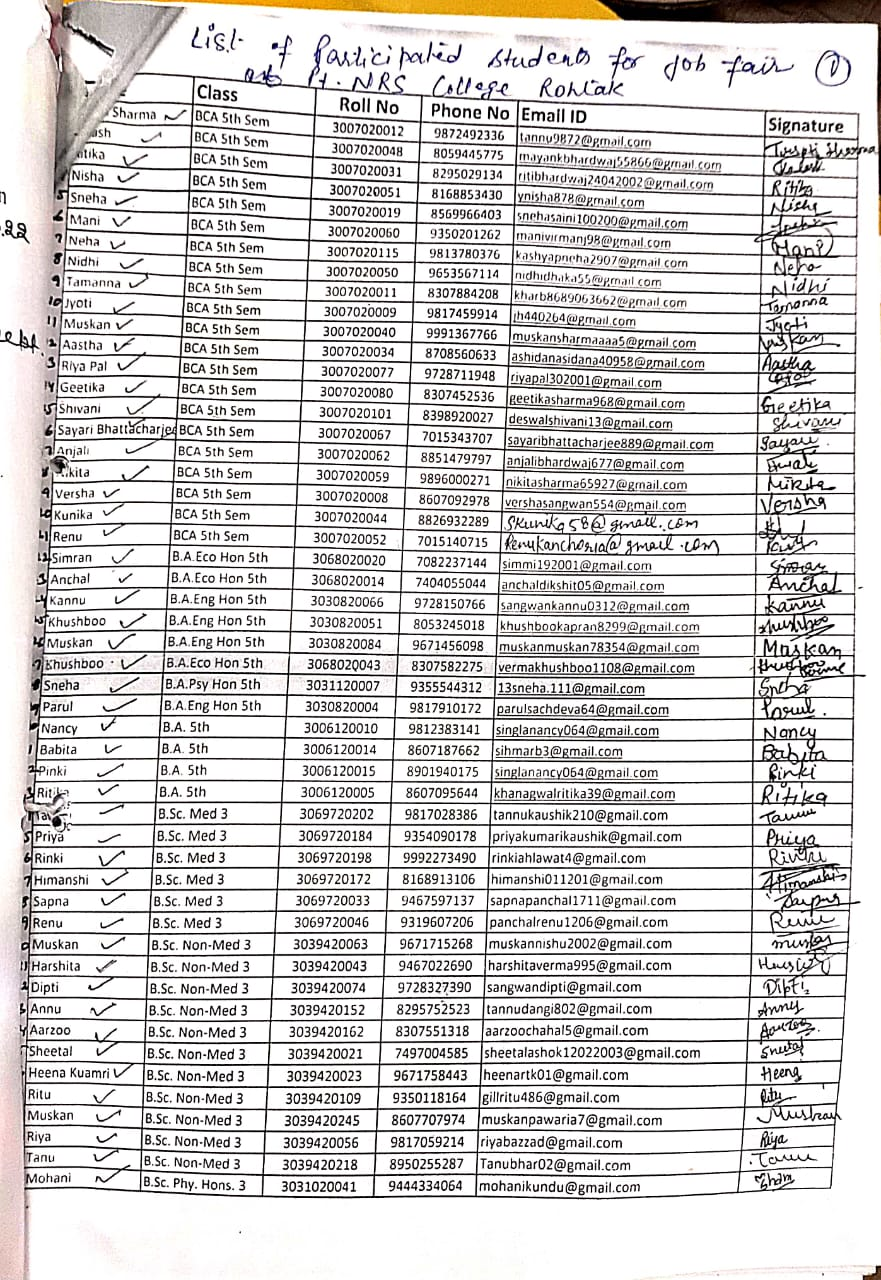 List of Participated Students for Job fair ①
at Pt. NRS College Rohtak
Class Roll No Phone No Email ID Signature
Sharma ✓ BCA 5th Sem 3007020012 9872492336 tannu9872@gmail.com Trupti Sharma
BCA 5th Sem 3007020048 8059445775 mayankbhardwaj55866@gmail.com
BCA 5th Sem 3007020031 8295029134 ritibhardwaj24042002@gmail.com Ritika
Nisha ✓ BCA 5th Sem 3007020051 8168853430 ynisha878@gmail.com Nisha
5 Sneha ✓ BCA 5th Sem 3007020019 8569966403 snehasaini100200@gmail.com
6 Mani ✓ BCA 5th Sem 3007020060 9350201262 manivirmanj98@gmail.com Mani
7 Neha ✓ BCA 5th Sem 3007020115 9813780376 kashyapneha2907@gmail.com Neha
8 Nidhi ✓ BCA 5th Sem 3007020050 9653567114 nidhidhaka55@gmail.com Nidhi
9 Tamanna ✓ BCA 5th Sem 3007020011 8307884208 kharb8689063662@gmail.com Tamanna
10 Jyoti ✓ BCA 5th Sem 3007020009 9817459914 jh440264@gmail.com Jyoti
11 Muskan ✓ BCA 5th Sem 3007020040 9991367766 muskansharmaaaa5@gmail.com Muskan
12 Aastha ✓ BCA 5th Sem 3007020034 8708560633 ashidanasidana40958@gmail.com Aastha
3 Riya Pal ✓ BCA 5th Sem 3007020077 9728711948 riyapal302001@gmail.com
14 Geetika ✓ BCA 5th Sem 3007020080 8307452536 geetikasharma968@gmail.com Geetika
15 Shivani ✓ BCA 5th Sem 3007020101 8398920027 deswalshivani13@gmail.com Shivani
6 Sayari Bhattacharjee BCA 5th Sem 3007020067 7015343707 sayaribhattacharjee889@gmail.com Sayari
7 Anjali ✓ BCA 5th Sem 3007020062 8851479797 anjalibhardwaj677@gmail.com
8 Nikita ✓ BCA 5th Sem 3007020059 9896000271 nikitasharma65927@gmail.com Nikita
9 Versha ✓ BCA 5th Sem 3007020008 8607092978 vershasangwan554@gmail.com Versha
Kunika ✓ BCA 5th Sem 3007020044 8826932289 skunika58@gmail.com
Renu ✓ BCA 5th Sem 3007020052 7015140715 Renukanchoria@gmail.com
Simran ✓ B.A.Eco Hon 5th 3068020020 7082237144 simmi192001@gmail.com Simran
3 Anchal ✓ B.A.Eco Hon 5th 3068020014 7404055044 anchaldikshit05@gmail.com Anchal
Kannu ✓ B.A.Eng Hon 5th 3030820066 9728150766 sangwankannu0312@gmail.com Kannu
Khushboo ✓ B.A.Eng Hon 5th 3030820051 8053245018 khushbookapran8299@gmail.com Khushboo
Muskan ✓ B.A.Eng Hon 5th 3030820084 9671456098 muskanmuskan78354@gmail.com Muskan
7 Khushboo ✓ B.A.Eco Hon 5th 3068020043 8307582275 vermakhushboo1108@gmail.com
Sneha ✓ B.A.Psy Hon 5th 3031120007 9355544312 13sneha.111@gmail.com Sneha
Parul ✓ B.A.Eng Hon 5th 3030820004 9817910172 parulsachdeva64@gmail.com Parul.
Nancy ✓ B.A. 5th 3006120010 9812383141 singlanancy064@gmail.com Nancy
1 Babita ✓ B.A. 5th 3006120014 8607187662 sihmarb3@gmail.com Babita
2 Pinki ✓ B.A. 5th 3006120015 8901940175 singlanancy064@gmail.com Pinki
3 Ritika B.A. 5th 3006120005 8607095644 khanagwalritika39@gmail.com Ritika
✓ B.Sc. Med 3 3069720202 9817028386 tannukaushik210@gmail.com Tannu
5 Priya ✓ B.Sc. Med 3 3069720184 9354090178 priyakumarikaushik@gmail.com Priya
6 Rinki ✓ B.Sc. Med 3 3069720198 9992273490 rinkiahlawat4@gmail.com Rinki
7 Himanshi ✓ B.Sc. Med 3 3069720172 8168913106 himanshi011201@gmail.com Himanshi
8 Sapna ✓ B.Sc. Med 3 3069720033 9467597137 sapnapanchal1711@gmail.com Sapna
9 Renu ✓ B.Sc. Med 3 3069720046 9319607206 panchalrenu1206@gmail.com Renu
0 Muskan ✓ B.Sc. Non-Med 3 3039420063 9671715268 muskannishu2002@gmail.com Muskan
Harshita ✓ B.Sc. Non-Med 3 3039420043 9467022690 harshitaverma995@gmail.com
2 Dipti ✓ B.Sc. Non-Med 3 3039420074 9728327390 sangwandipti@gmail.com Dipti
3 Annu ✓ B.Sc. Non-Med 3 3039420152 8295752523 tannudangi802@gmail.com Annu
4 Aarzoo ✓ B.Sc. Non-Med 3 3039420162 8307551318 aarzoochahal5@gmail.com Aarzoo.
Sheetal ✓ B.Sc. Non-Med 3 3039420021 7497004585 sheetalashok12022003@gmail.com Sheetal
Heena Kuamri ✓ B.Sc. Non-Med 3 3039420023 9671758443 heenartk01@gmail.com Heena
Ritu ✓ B.Sc. Non-Med 3 3039420109 9350118164 gillritu486@gmail.com Ritu
Muskan ✓ B.Sc. Non-Med 3 3039420245 8607707974 muskanpawaria7@gmail.com Muskan
Riya ✓ B.Sc. Non-Med 3 3039420056 9817059214 riyabazzad@gmail.com Riya
Tanu ✓ B.Sc. Non-Med 3 3039420218 8950255287 Tanubhar02@gmail.com Tanu
Mohani ✓ B.Sc. Phy. Hons. 3 3031020041 9444334064 mohanikundu@gmail.com